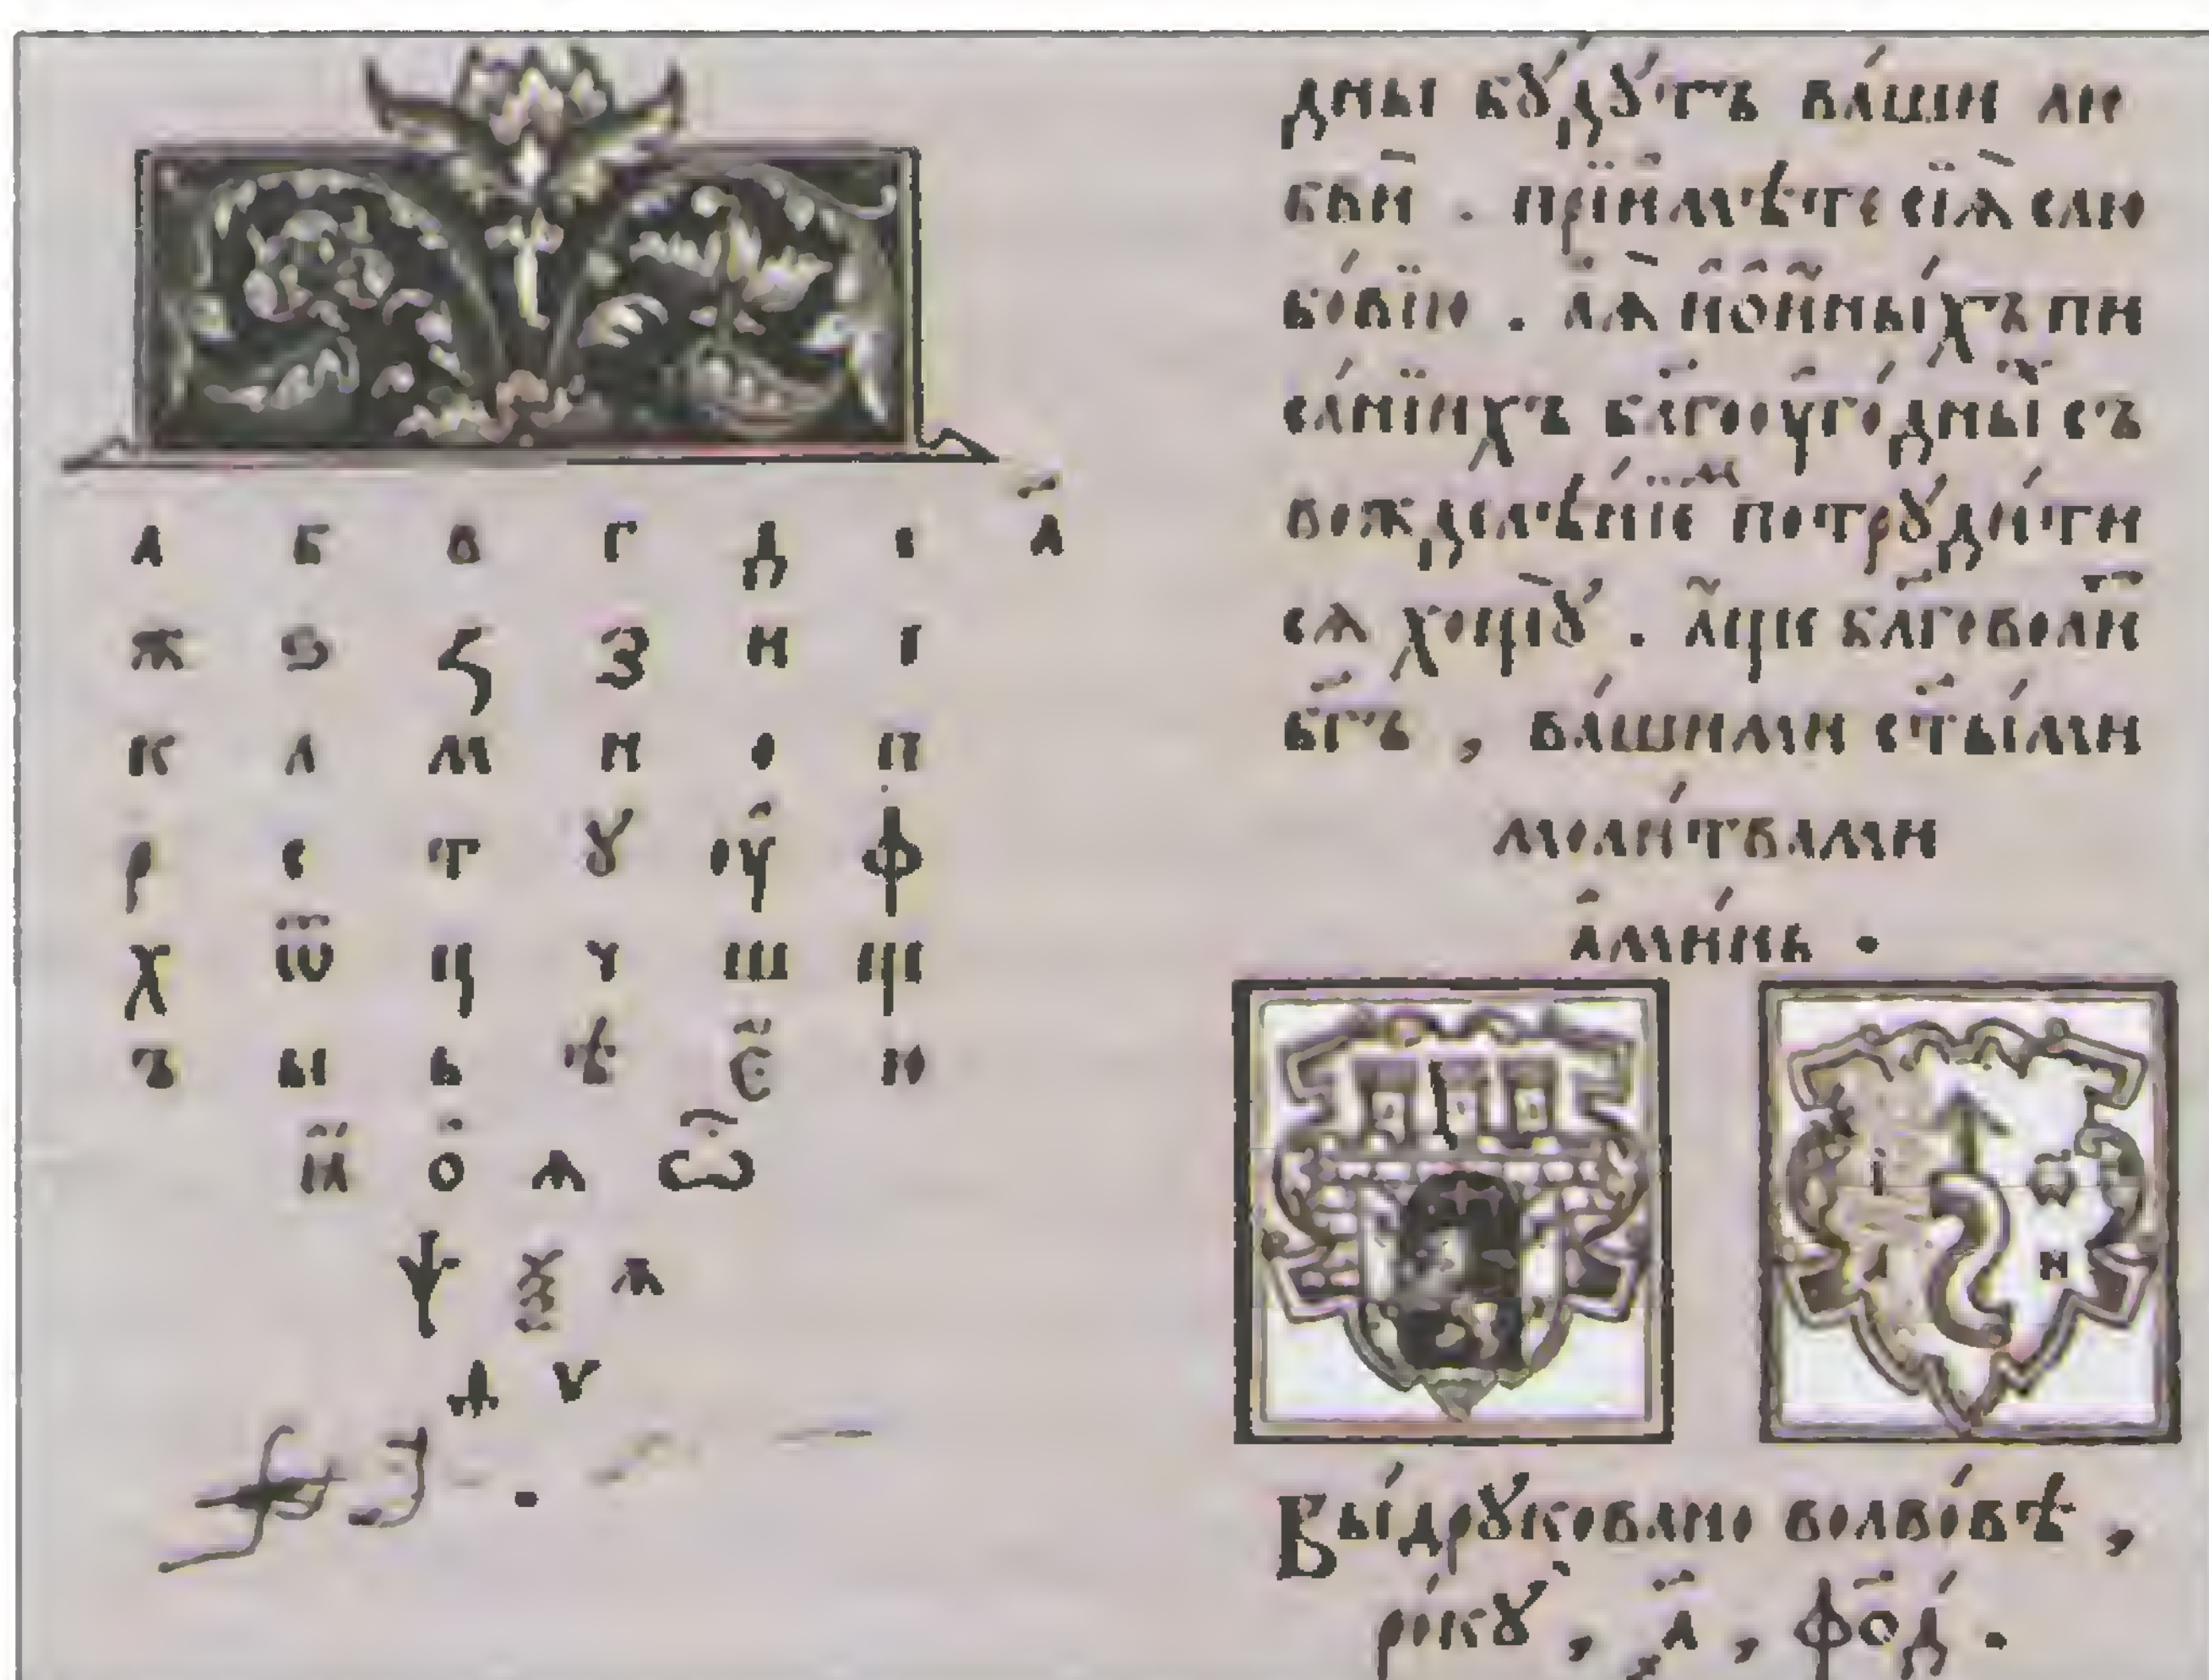 а б в г д е
а҃
ж ѕ ꙃ з и і
к л м н о п
р с т ꙋ оу ф
х ѿ ц ч ш щ
ъ ы ь ѣ є ю
ꙗ о ѧ ѽ
ѱ ѯ ѫ
ѳ ѵ
дны бꙋ́дꙋтъ ва́ши лю
бви . прїимѣте сїѧ слю
бо́вїю . а҆ѧ и҆ о҆ и҆ны́хъ пи
са́нїихъ бл҃гооуго́дныⷯ съ
вожделѣ́нїеⷨ потрꙋди́ти
сѧ хощꙋ̀ . а҆ще бл҃говоли́тъ
бг҃ъ , ва́шими ст҃ы́ми
моли́твами
а҆ми́нь .
і ѡ
н
Вы́дрꙋковано волво́вѣ ,
ро́кꙋ , ҂а҃ , фо҃д .